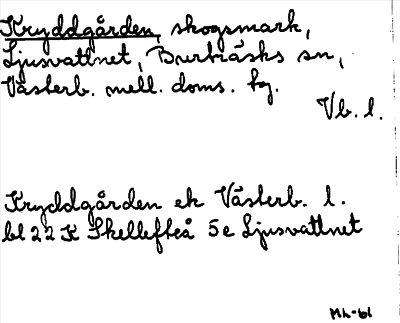 Kryddgården, skogsmark,
Ljusvattnet, Burträsks sn,
Västerb. mell. doms. fg.
Vb. l.
Kryddgården ek Västerb. l.
bl 22 K Skellefteå 5c Ljusvattnet
ML-61